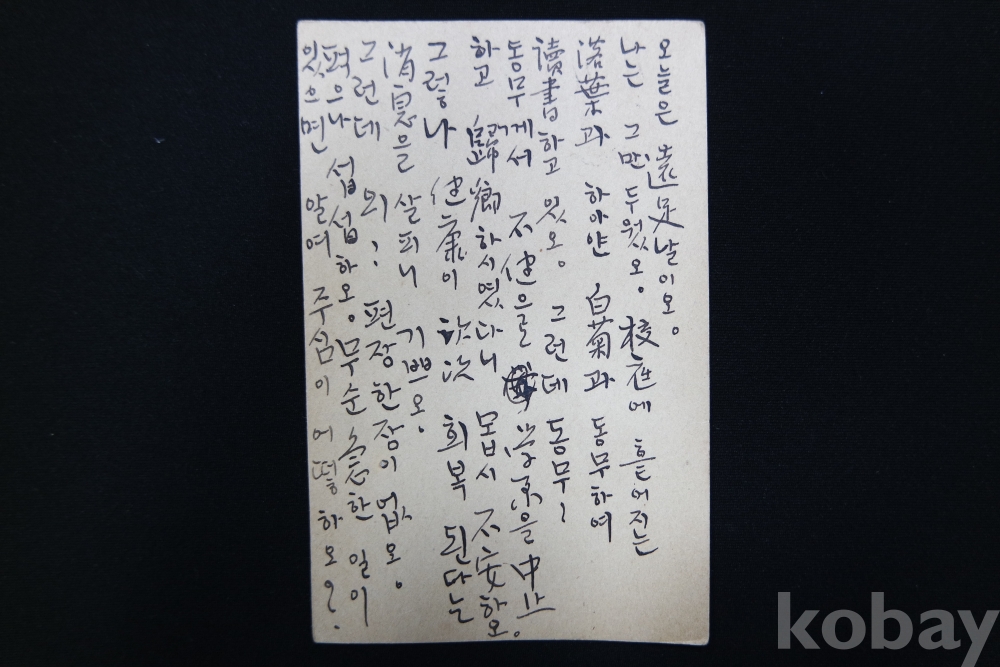 오늘은 遠足날이오。
나는 그만두웠오。 校庭에 흩어지는
落葉과 하아얀 白菊과 동무하여
讀書하고 있오。 그런데 동무ㅣ
동무게서 不健을로 学業을 中止
하고 歸鄕하시였다니 몹시 不安하오。
그렇나 健康이 次次 회복 된다는
消息을 살피니 기쁘오。
그런데 외? 편장한장이 없오。
퍽으나 섭섭하오。무슨 急한 일이
있으면 알여 주심이 어떻하오?
kobay